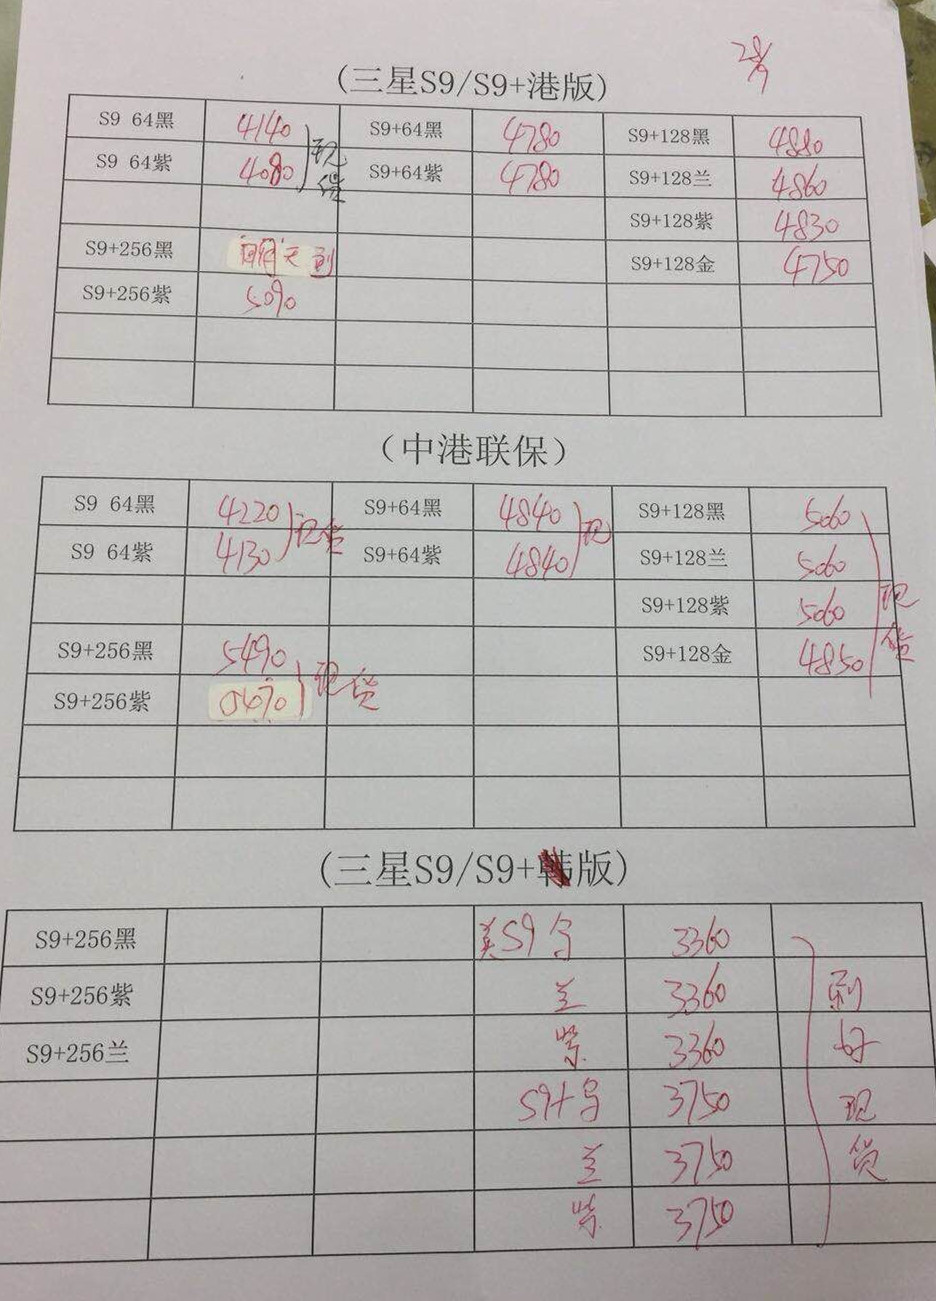 (三星S9/S9+港版)
S9 64黑 4140 S9+64黑 4780 S9+128黑 4880
现货
S9 64紫 4080 S9+64紫 4780 S9+128兰 4860
S9+128紫 4830
S9+256黑 明天到 S9+128金 4750
S9+256紫 5090
(中港联保)
S9 64黑 4220 S9+64黑 4840 S9+128黑 5060
现货 现
S9 64紫 4130 S9+64紫 4840 S9+128兰 5060
S9+128紫 5060
现货
S9+256黑 5490 S9+128金 4850
现货
S9+256紫 5470
(三星S9/S9+韩版)
S9+256黑 美S9 3360
S9+256紫 兰 3360
S9+256兰 紫 3360
S9+ 3750
兰 3750
紫 3750
到好现货